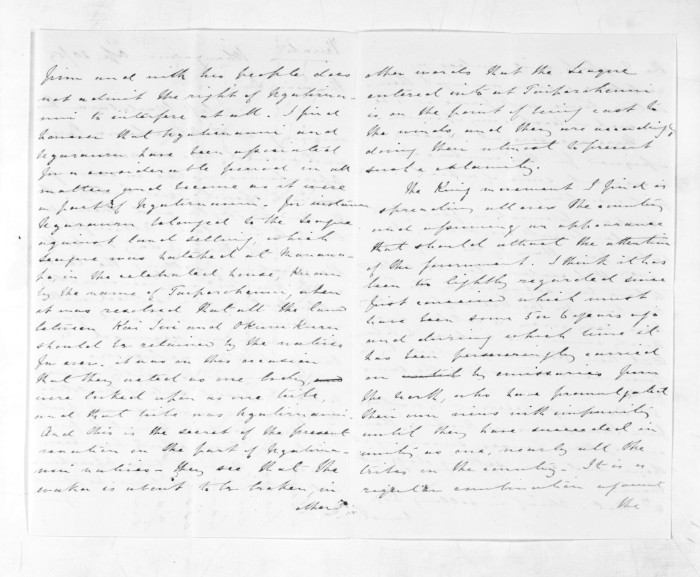 firm and with his people does
not admit the right of Ngatirua-
nui to interfere at all. I find
however that Ngatiruanui and
Ngarauru have been associated
for a considerable period in all
matters and become as it were
a part of Ngatiruanui. For instance
Ngarauru belonged to the League
against land selling, which
League was hatched at Manawa-
pa, in the celebrated house, known
by the name of Taiporohenui, when
it was resolved that all the land
between Kai Iwi and Okurukuru
should be retained by the natives
for ever. it was on this occasion
that they acted as one body,
were looked upon as one tribe,
and that tribe was Ngatiruanui.
And this is the secret of the present
on the part of Ngatirua-
nui natives - they see that the
is about to be broken, in
other
other words that the League
entered into at Taiporohenui
is on the point of being cast to
the winds, and they are accordingly
doing their utmost to prevent
such a calamity.
The King movement I find is
spreading all over the country
and assuming an appearance
that should attract the attention
of the Government. I think it has
been too lightly regarded since
first conceived which must
have been some 5 or 6 years ago
and during which time it
has been perseveringly carried
on by emissaries from
the North, who have promulgated
their own views with impunity
until they have succeeded in
uniting as one, nearly all the
tribes in the country. It is a
combination against
the